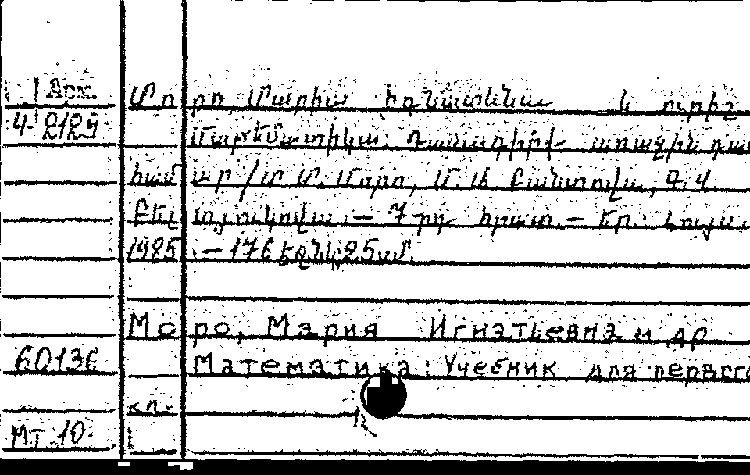 Արխ.
Մորո, Մարիա Իգնատևնա և ուրիշ
4-2129
Մաթեմատիկա: Դասագիրք առաջին դաս
համար / Մ. Ի. Մորո, Մ. Ա. Բանտովա, Գ. Վ.
Բելտյուկովա. — 7-րդ հրատ. — Եր.: Լույս
1985. — 176 էջ, նկ; 25 սմ.
Моро, Мария Игнатьевна и др
60136
Математика: Учебник для первого
кл.
Мт 10